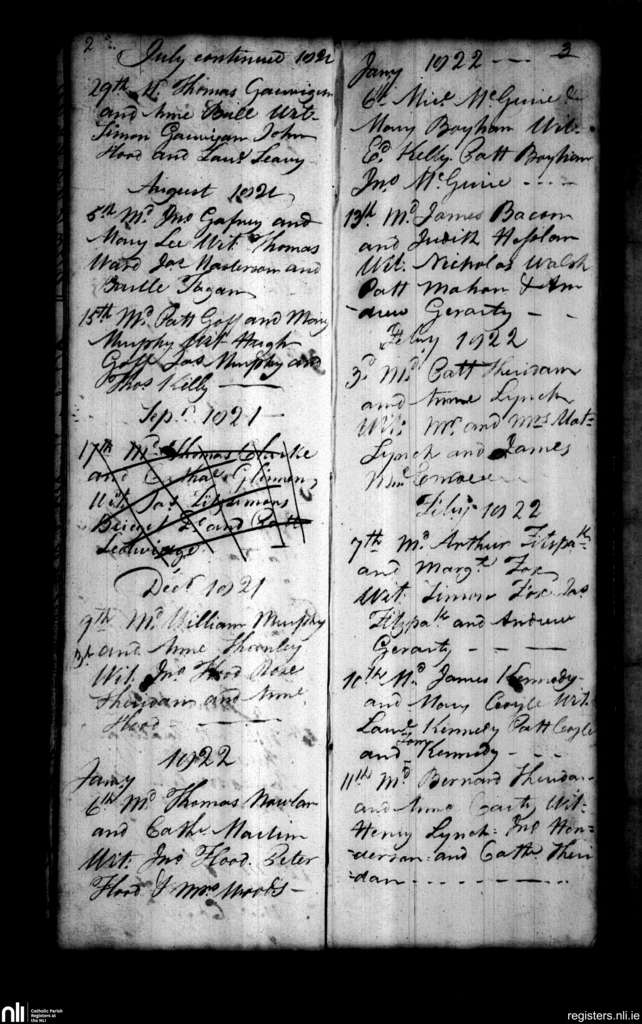 2
July continued 1821
29th Md. Thomas Gauvigan
and Anne Bull Wit.
Simon Gauvigan John
Hood and Laue Leavy
August 1821
5th Md. Jno Gafney and
Mary Lee Wit. Thomas
Ward Jas Masterson and
Fagan
15th Md. Patt Goff and Mary
Murphy Wit. Hugh
Goff Jas Murphy and
Thos Killy
Sepr. 1821
17th Md. Thomas Clarke
and
Wit. Jas Fitzsimons
and Patt
Ledwidge
Decr. 1821
9th Md. William Murphy
and Anne
Wit. Jno Hood Rose
Sheridan and Anne
Hood
1822
Jany
6th Md. Thomas Nowlan
and Cathe. Martin
Wit. Jno Flood Peter
Flood & Mrs Woods
3
Jany 1822
6th Micl. McGuire &
Mary Boyhan Wit.
Ed. Kelly Patt Boyhan
Jno McGuire
13th Md. James Bacon
and Judith Heslan
Wit. Nicholas Walsh
Patt Mahon & An
drew Gerarty
Feby 1822
3d Md. Patt Sheridan
and Anne Lynch
Wit. Mr. and Mrs Mat=
Lynch and James
Feby 1822
7th Md. Arthur Fitzpak
and Margt. Fox
Wit. Simon Fox Jas
Fitzpak and Andrew
Gerarty
10th Md. James Kennedy
and Mary Coyle Wit.
Laue Kennedy Patt Coyle
and Kennedy
11th Md. Bernard Sherida
and Anne Carty Wit.
Henry Lynch Jno Hen=
=derson and Cathe. Sheri
=dan
nli
Catholic Parish
Registers at
the NLI
registers.nli.ie